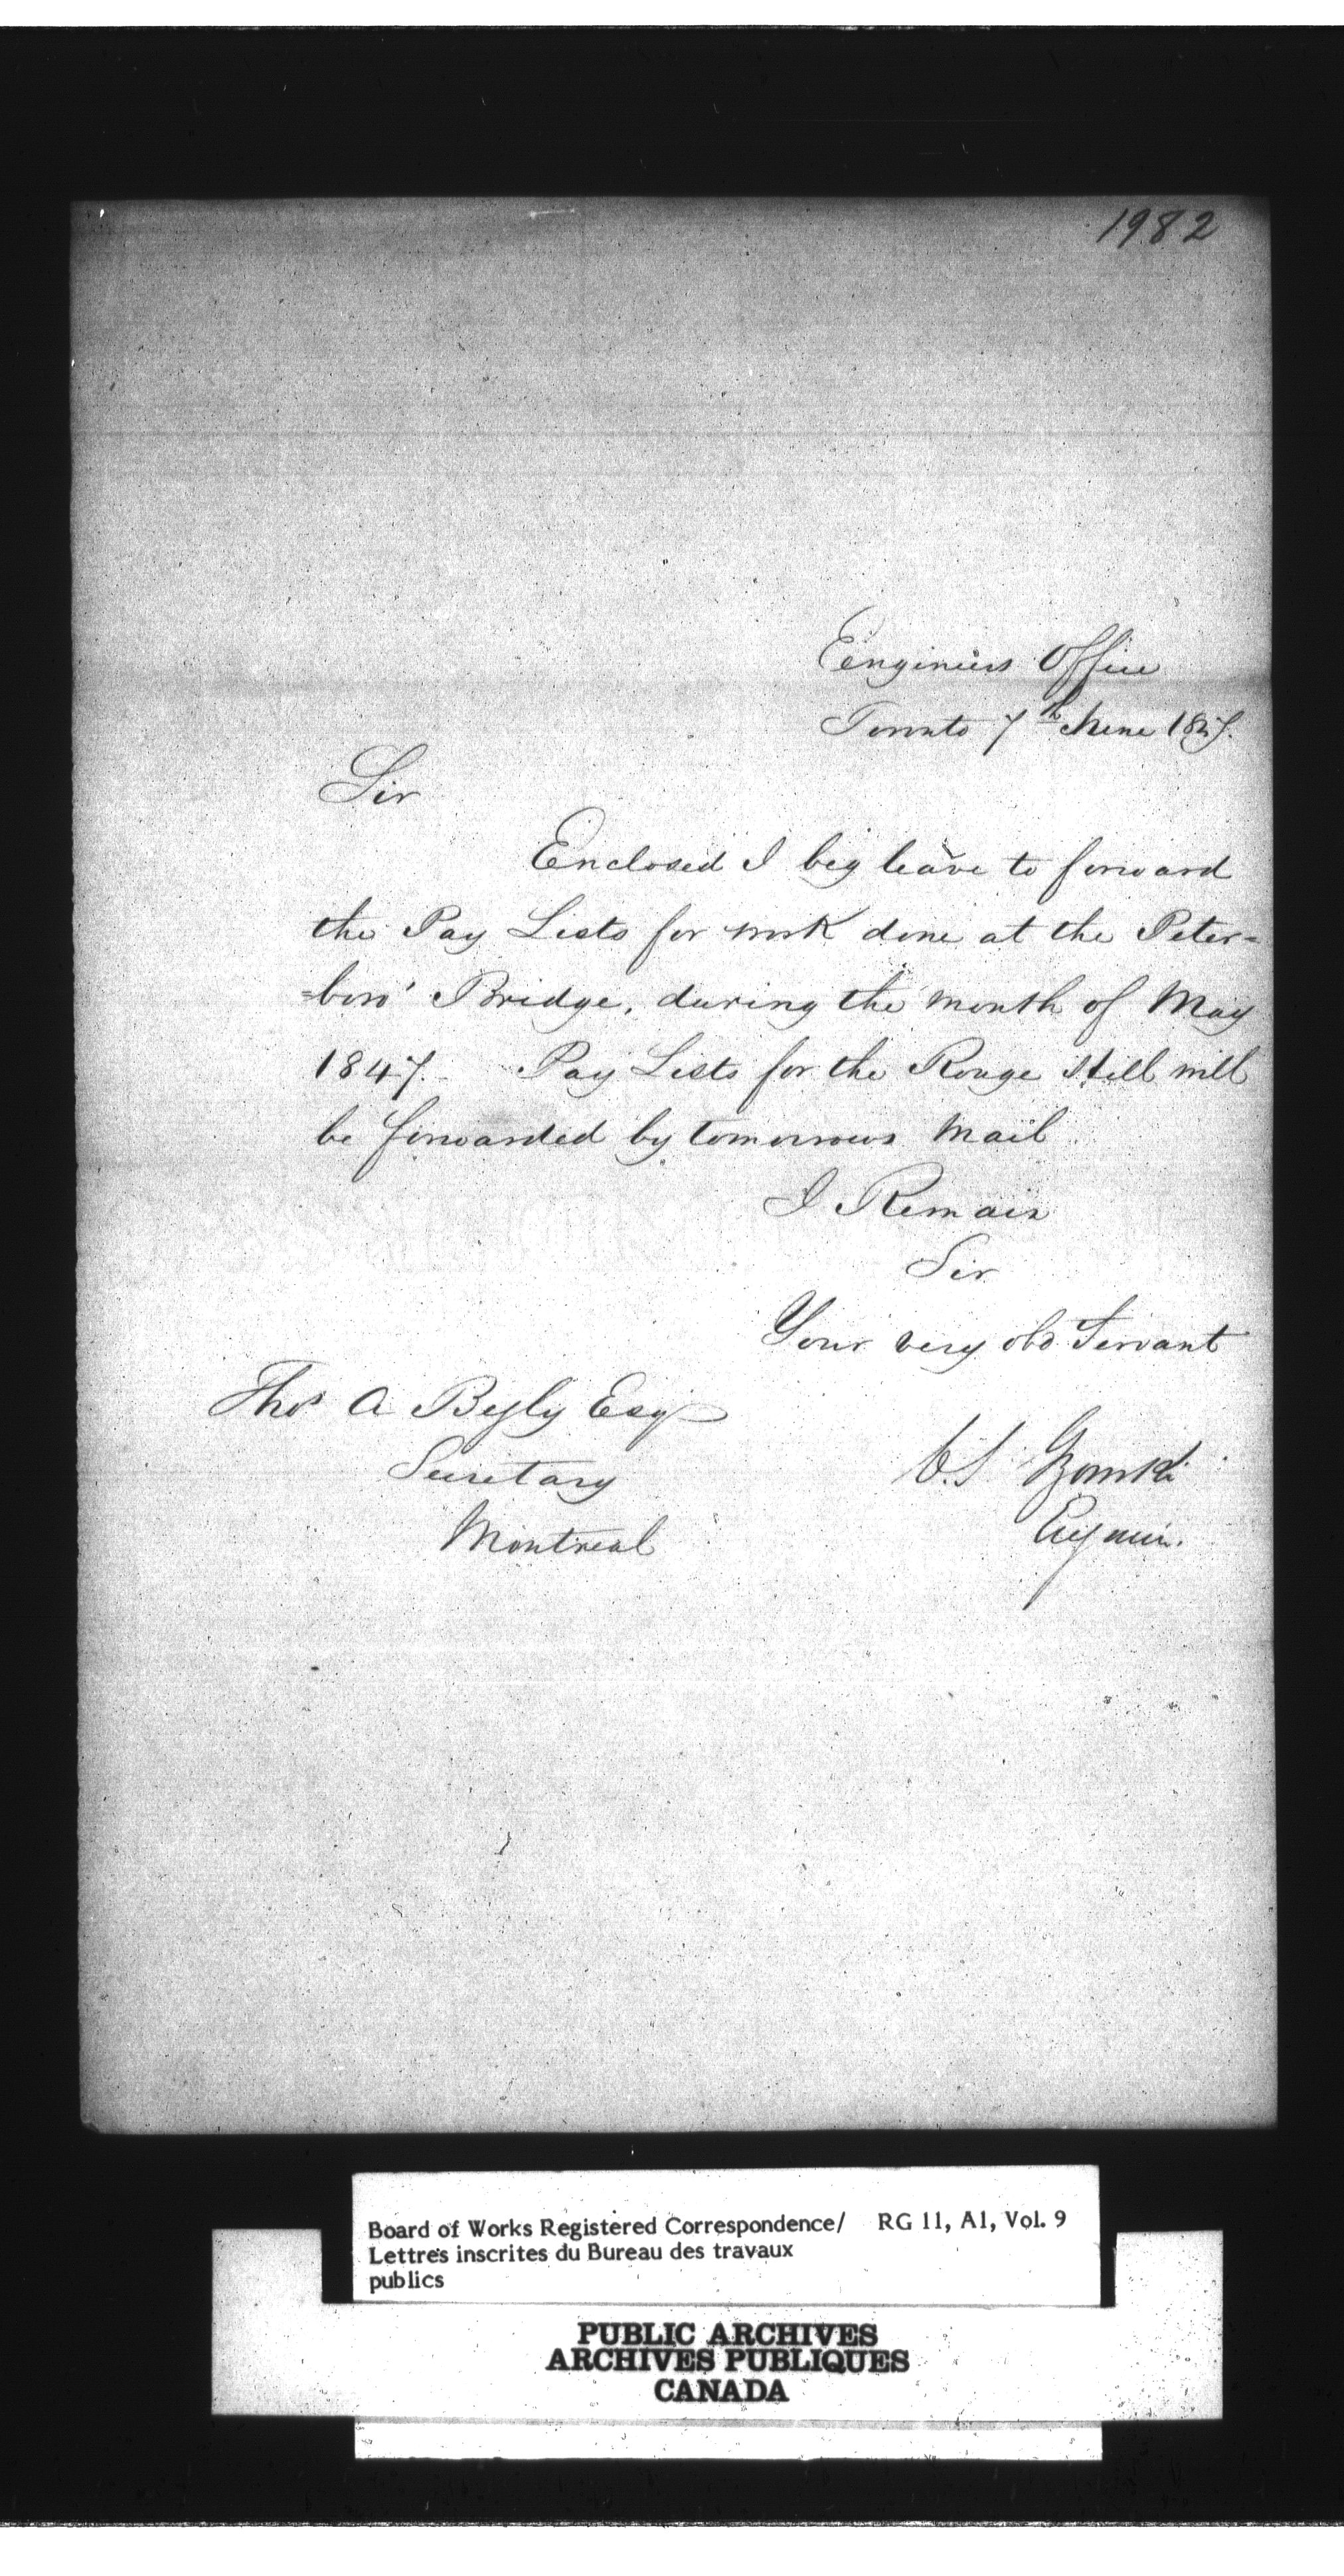 1982
Engineers Office
Toronto 7th June 1847.
Sir
Enclosed I beg leave to forward
the Pay Lists for work done at the Peter=
=boro' Bridge, during the month of May
1847. Pay Lists for the Rouge Hill will
be forwarded by tomorrows Mail
I Remain
Sir
Your very obd Servant
Thos A Begly Esqr
Secretary
Montreal
C.S Gzowski
Engineer.
Board of Works Registered Correspondence/ RG 11, A1, Vol. 9
Lettres inscrites du Bureau des travaux
publics
PUBLIC ARCHIVES
ARCHIVES PUBLIQUES
CANADA